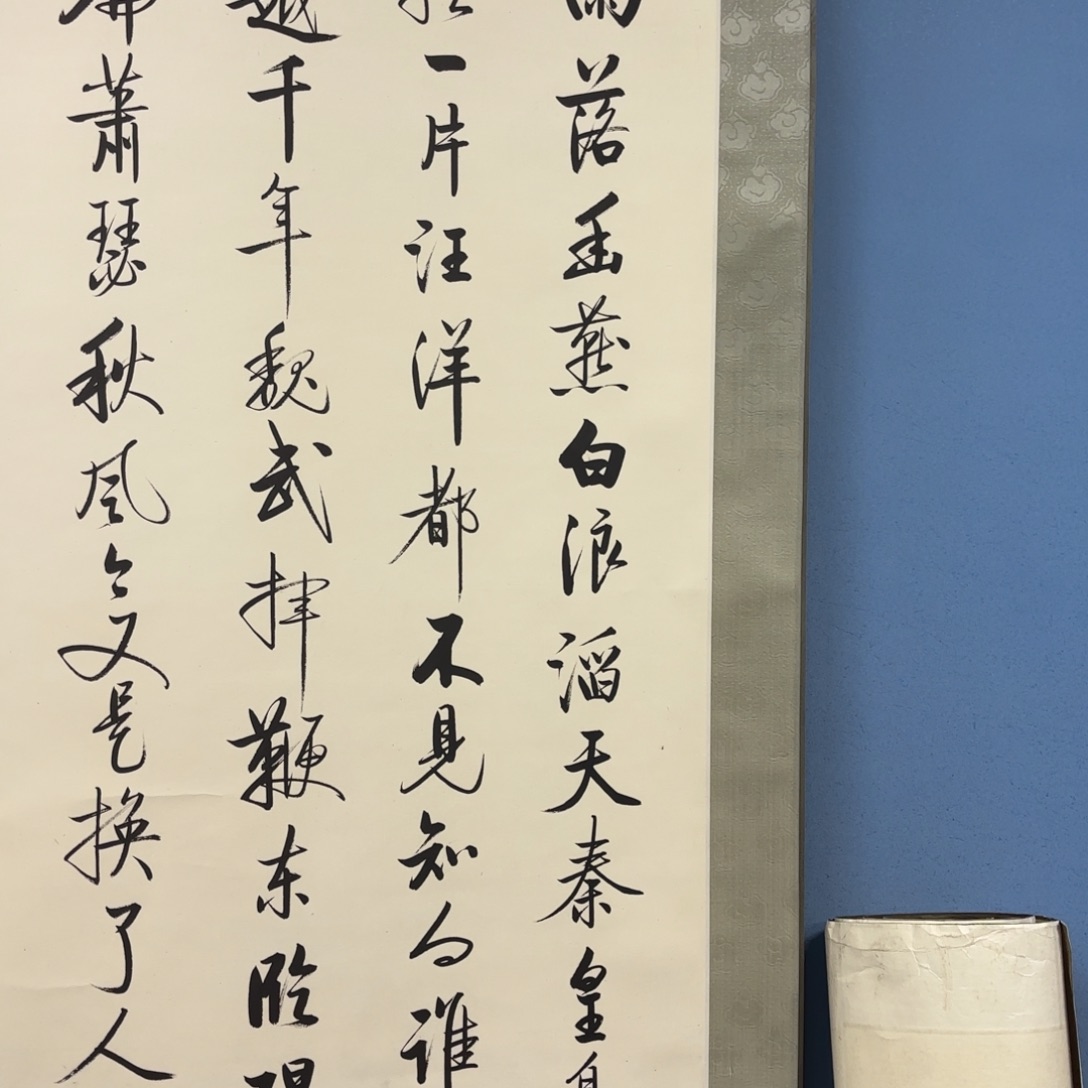 雨落幽燕白浪滔天秦皇
一片汪洋都不見知向誰
越千年魏武挥鞭东臨
蕭瑟秋风今又是换了人